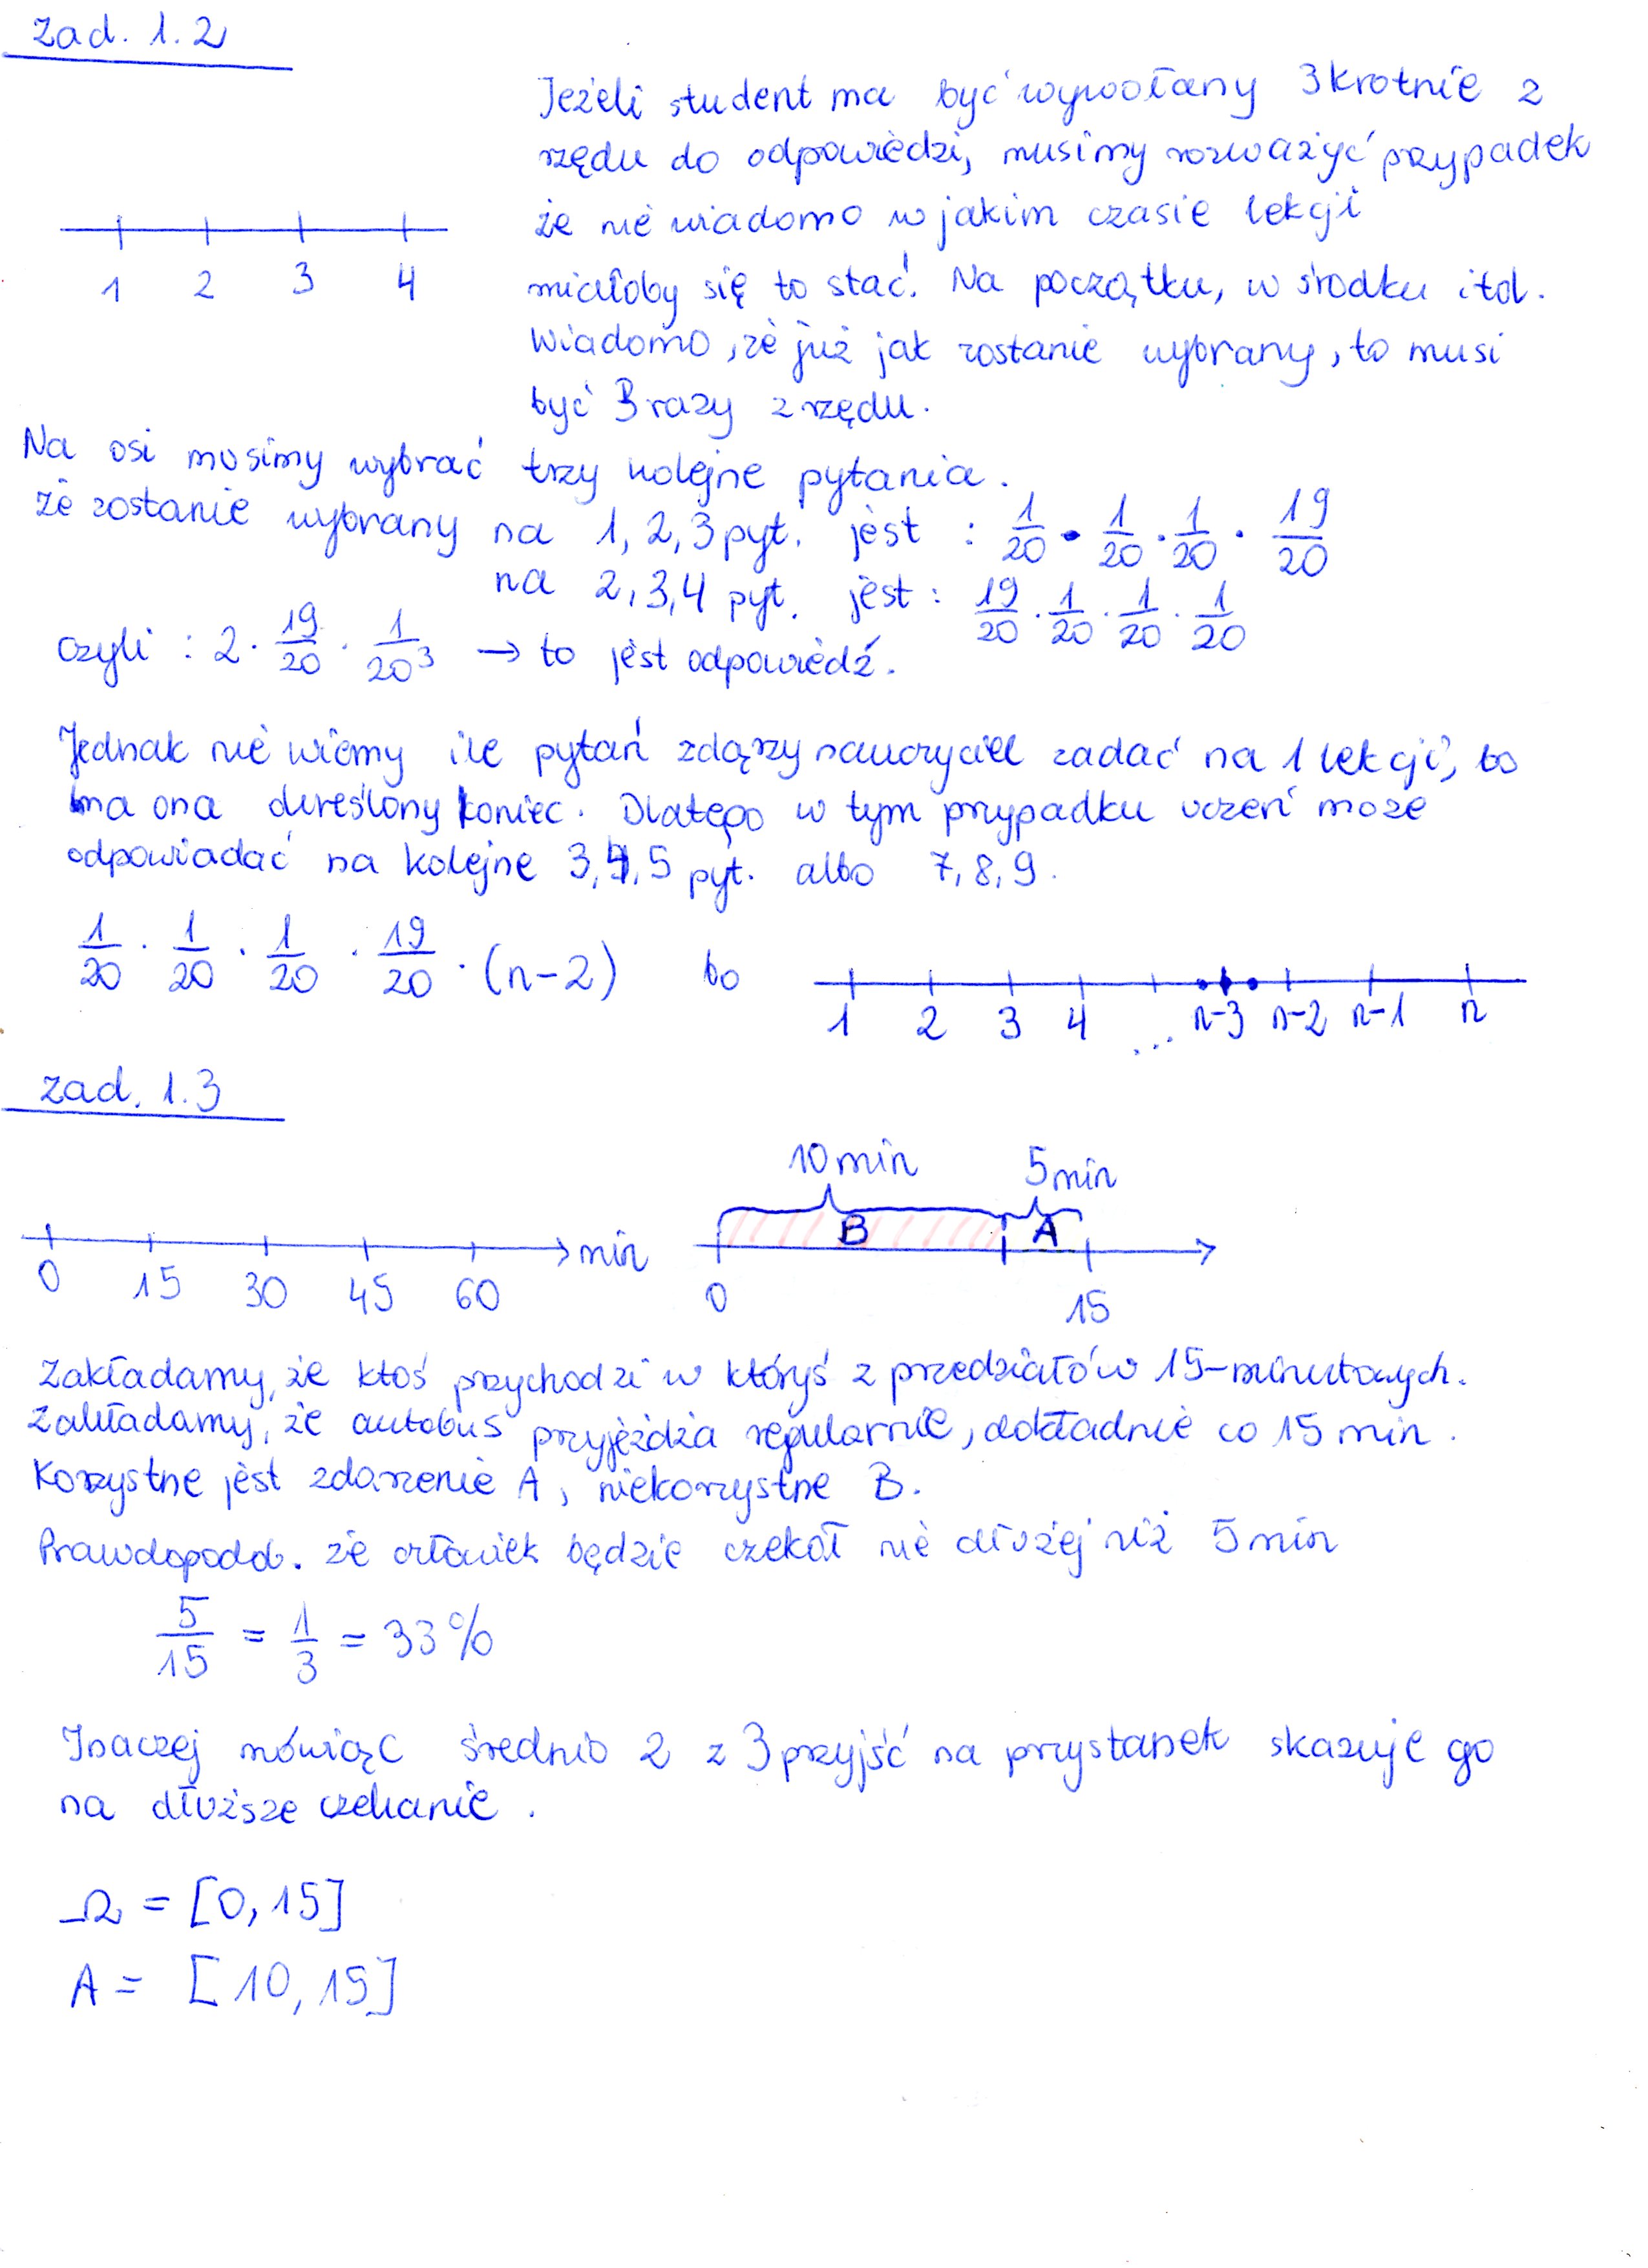 Zad. 1.2
Jeżeli student ma być wywołany 3 krotnie z
rzędu do odpowiedzi, musimy rozważyć przypadek
że nie wiadomo w jakim czasie lekcji
miałoby się to stać. Na początku, w środku itd.
Wiadomo, że już jak zostanie wybrany, to musi
być 3 razy z rzędu.
1 2 3 4
Na osi musimy wybrać trzy kolejne pytania.
że zostanie wybrany na 1, 2, 3 pyt. jest : 1/20 · 1/20 · 1/20 · 19/20
na 2, 3, 4 pyt. jest : 19/20 · 1/20 · 1/20 · 1/20
czyli : 2 · 19/20 · 1/20³ → to jest odpowiedź.
Jednak nie wiemy ile pytań zdąży nauczyciel zadać na 1 lekcji, bo
ma ona określony koniec. Dlatego w tym przypadku uczeń może
odpowiadać na kolejne 3, 4, 5 pyt. albo 7, 8, 9.
1/20 · 1/20 · 1/20 · 19/20 · (n-2) bo
1 2 3 4 ... n-3 n-2 n-1 n
zad. 1.3
10 min 5 min
B A
0 15 30 45 60 min
0 15
Zakładamy, że ktoś przychodzi w któryś z przedziałów 15-minutowych.
Zakładamy, że autobus przyjeżdża regularnie, dokładnie co 15 min.
Korzystne jest zdarzenie A, niekorzystne B.
Prawdopodob. że człowiek będzie czekał nie dłużej niż 5 min
5/15 = 1/3 = 33%
Inaczej mówiąc średnio 2 z 3 przyjść na przystanek skazuje go
na dłuższe czekanie.
Ω = [0, 15]
A = [10, 15]